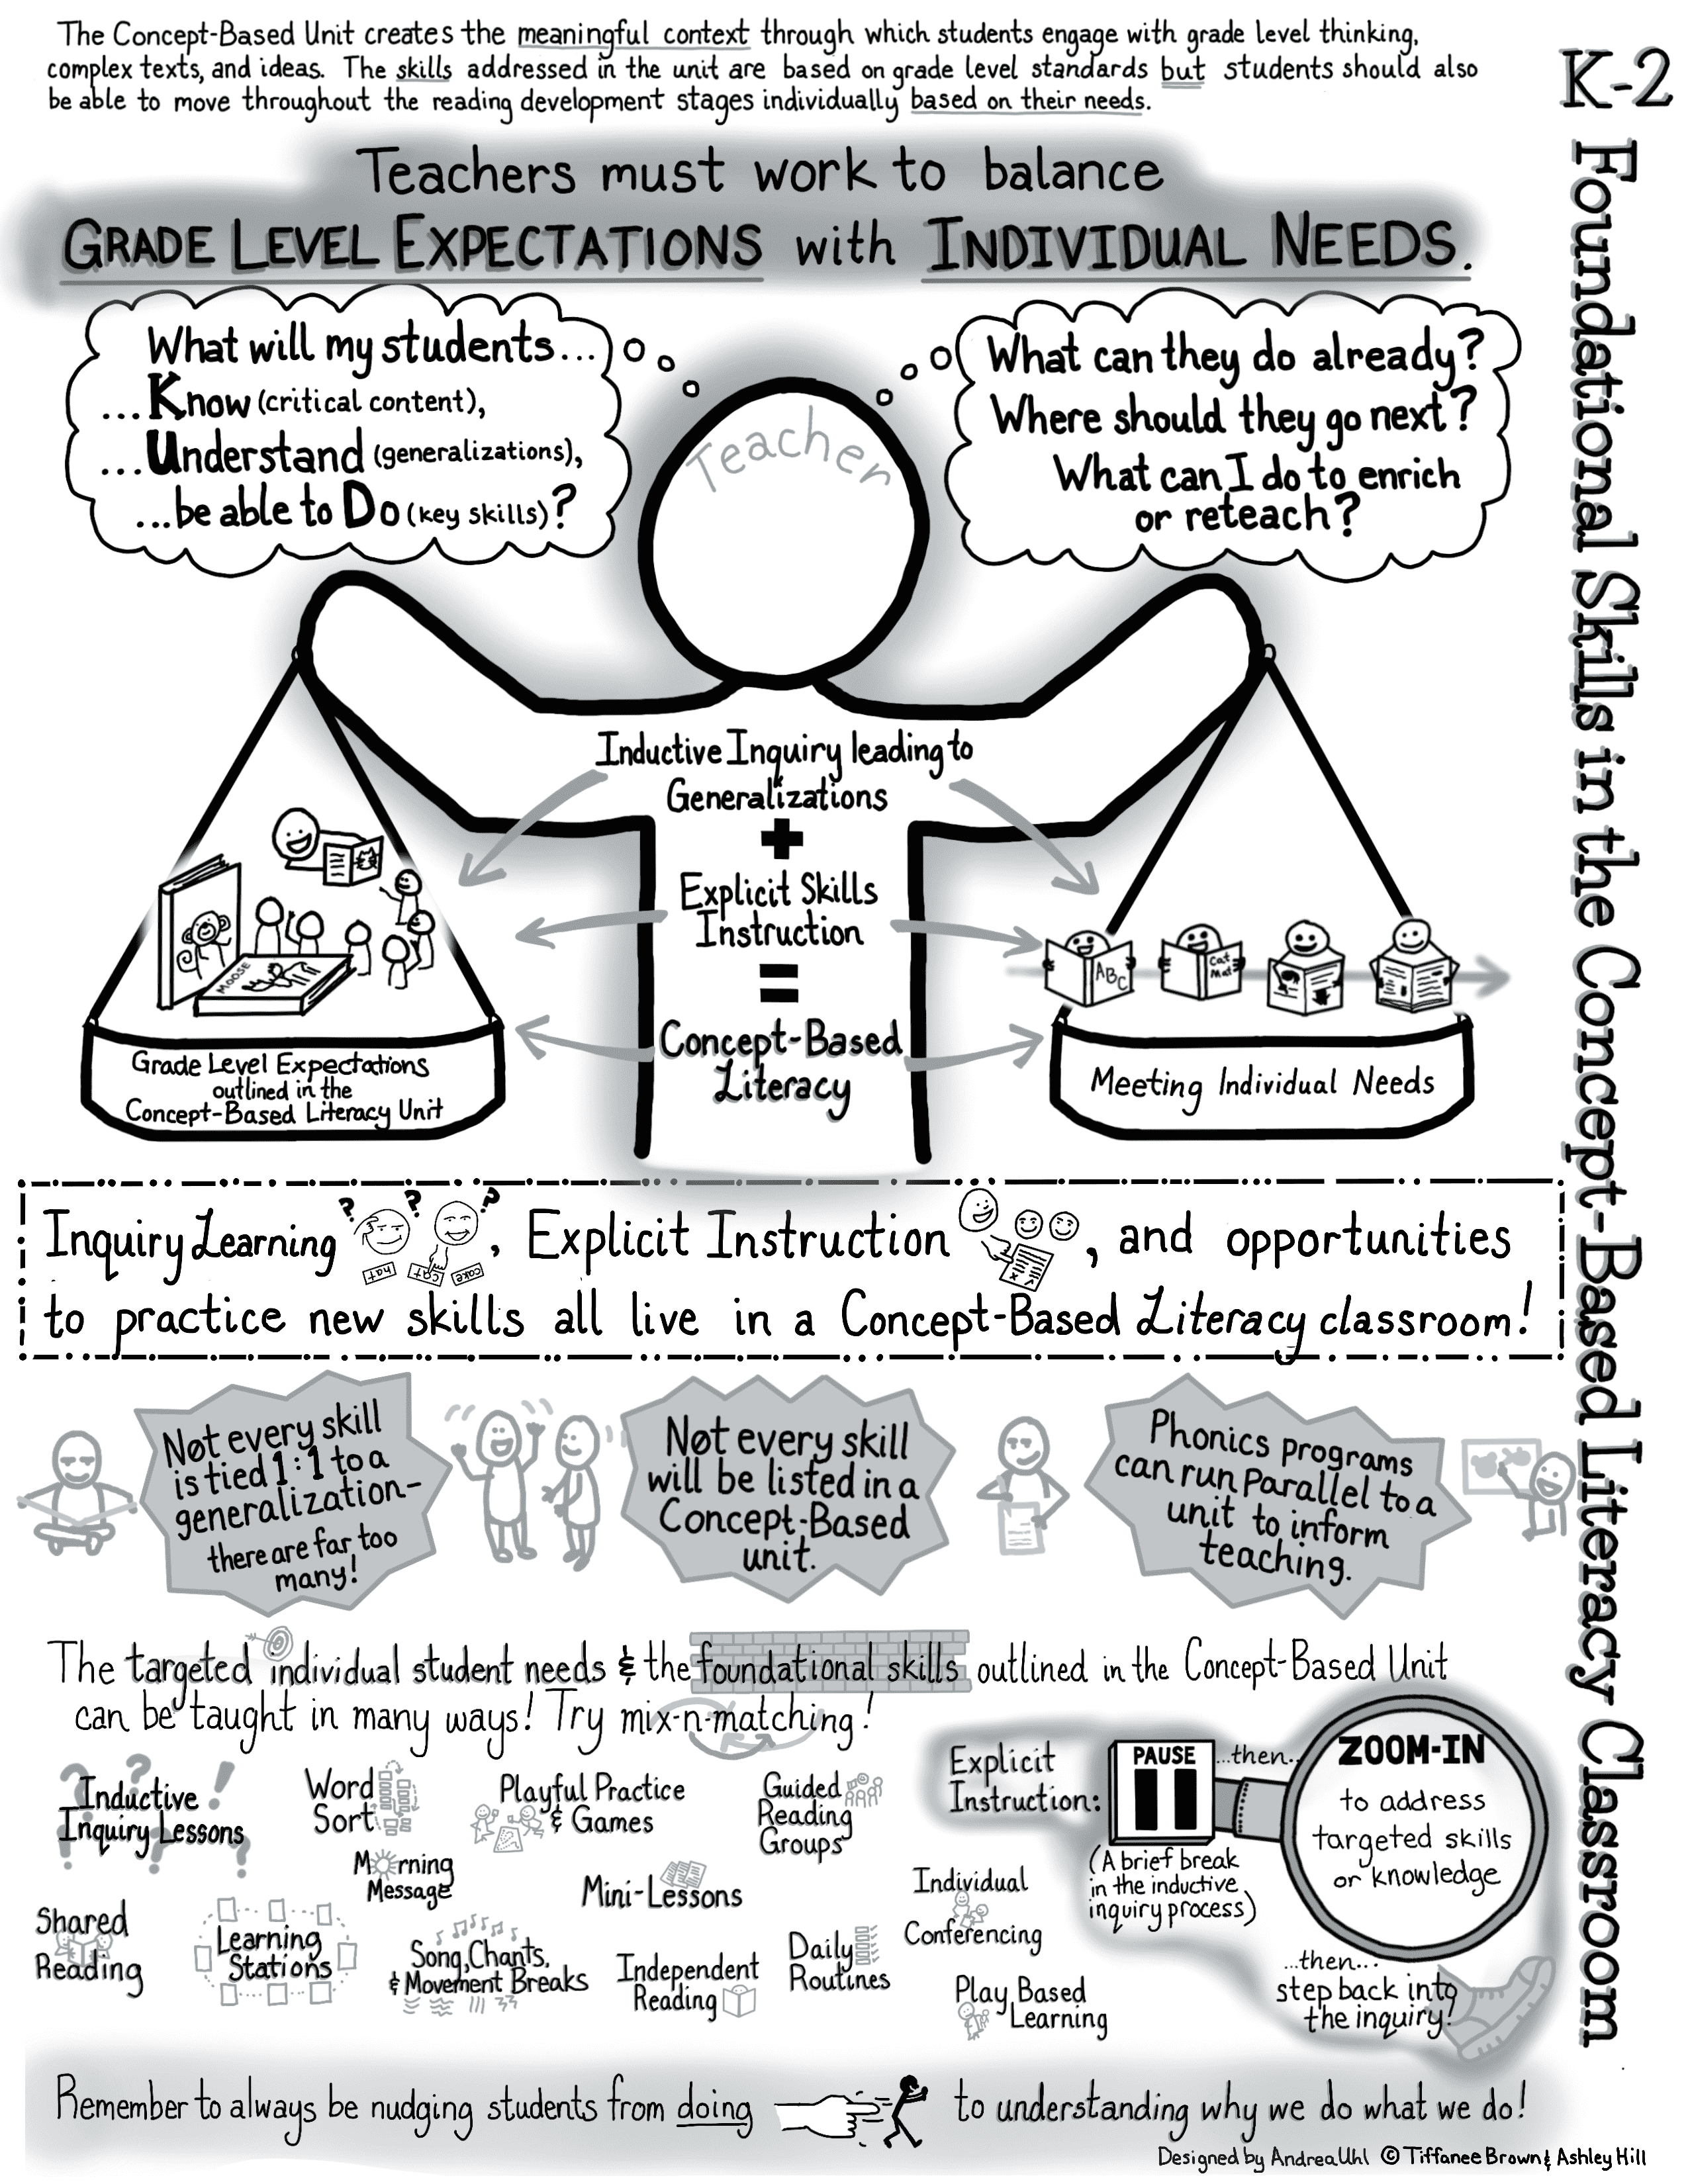 The Concept-Based Unit creates the meaningful context through which students engage with grade level thinking,
complex texts, and ideas. The skills addressed in the unit are based on grade level standards but students should also
be able to move throughout the reading development stages individually based on their needs.
K-2 Foundational Skills in the Concept-Based Literacy Classroom
Teachers must work to balance
GRADE LEVEL EXPECTATIONS with INDIVIDUAL NEEDS.
What will my students...
...Know (critical content),
...Understand (generalizations),
...be able to Do (key skills)?
Teacher
What can they do already?
Where should they go next?
What can I do to enrich
or reteach?
Inductive Inquiry leading to
Generalizations
+
Explicit Skills
Instruction
=
Concept-Based
Literacy
MOOSE
Grade Level Expectations
outlined in the
Concept-Based Literacy Unit
ABC
Cat
Mat
Meeting Individual Needs
? ? ?
Inquiry Learning, Explicit Instruction, and opportunities
hat cat cake
to practice new skills all live in a Concept-Based Literacy classroom!
Not every skill
is tied 1:1 to a
generalization-
there are far too
many!
Not every skill
will be listed in a
Concept-Based
unit.
Phonics programs
can run parallel to a
unit to inform
teaching.
The targeted individual student needs & the foundational skills outlined in the Concept-Based Unit
can be taught in many ways! Try mix-n-matching!
Inductive
Inquiry Lessons
Word
Sort
Playful Practice
& Games
Guided
Reading
Groups
Morning
Message
Mini-Lessons
Individual
Conferencing
Shared
Reading
Learning
Stations
Song, Chants,
& Movement Breaks
Independent
Reading
Daily
Routines
Play Based
Learning
Explicit
Instruction:
PAUSE
(A brief break
in the inductive
inquiry process)
...then...
ZOOM-IN
to address
targeted skills
or knowledge
...then...
step back into
the inquiry!
Remember to always be nudging students from doing to understanding why we do what we do!
Designed by Andrea Uhl © Tiffanee Brown & Ashley Hill